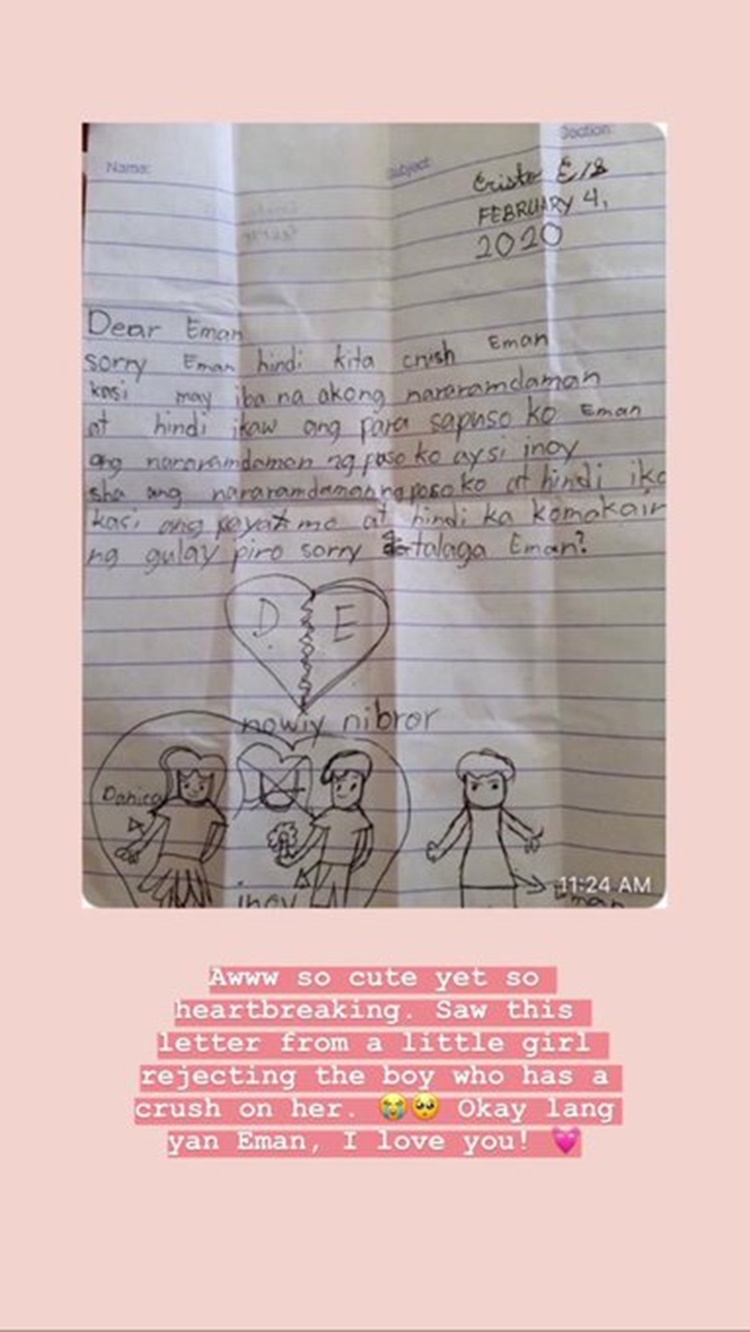 Name:
Subject
Section
Cristo E/S
FEBRUARY 4,
2020
Dear Eman
sorry Eman hindi kita crush Eman
kasi may iba na akong nararamdaman
at hindi ikaw ang para sapuso ko Eman
ang nararamdaman ng puso ko aysi inoy
sha ang nararamdaman ng poso ko at hindi ika
kasi ang payat mo at hindi ka komakain
ng gulay piro sorry talaga Eman?
D E
nowiy nibror
Danica
inoy
Eman
11:24 AM
Awww so cute yet so
heartbreaking. Saw this
letter from a little girl
rejecting the boy who has a
crush on her. 😭🥺 Okay lang
yan Eman, I love you! 💗